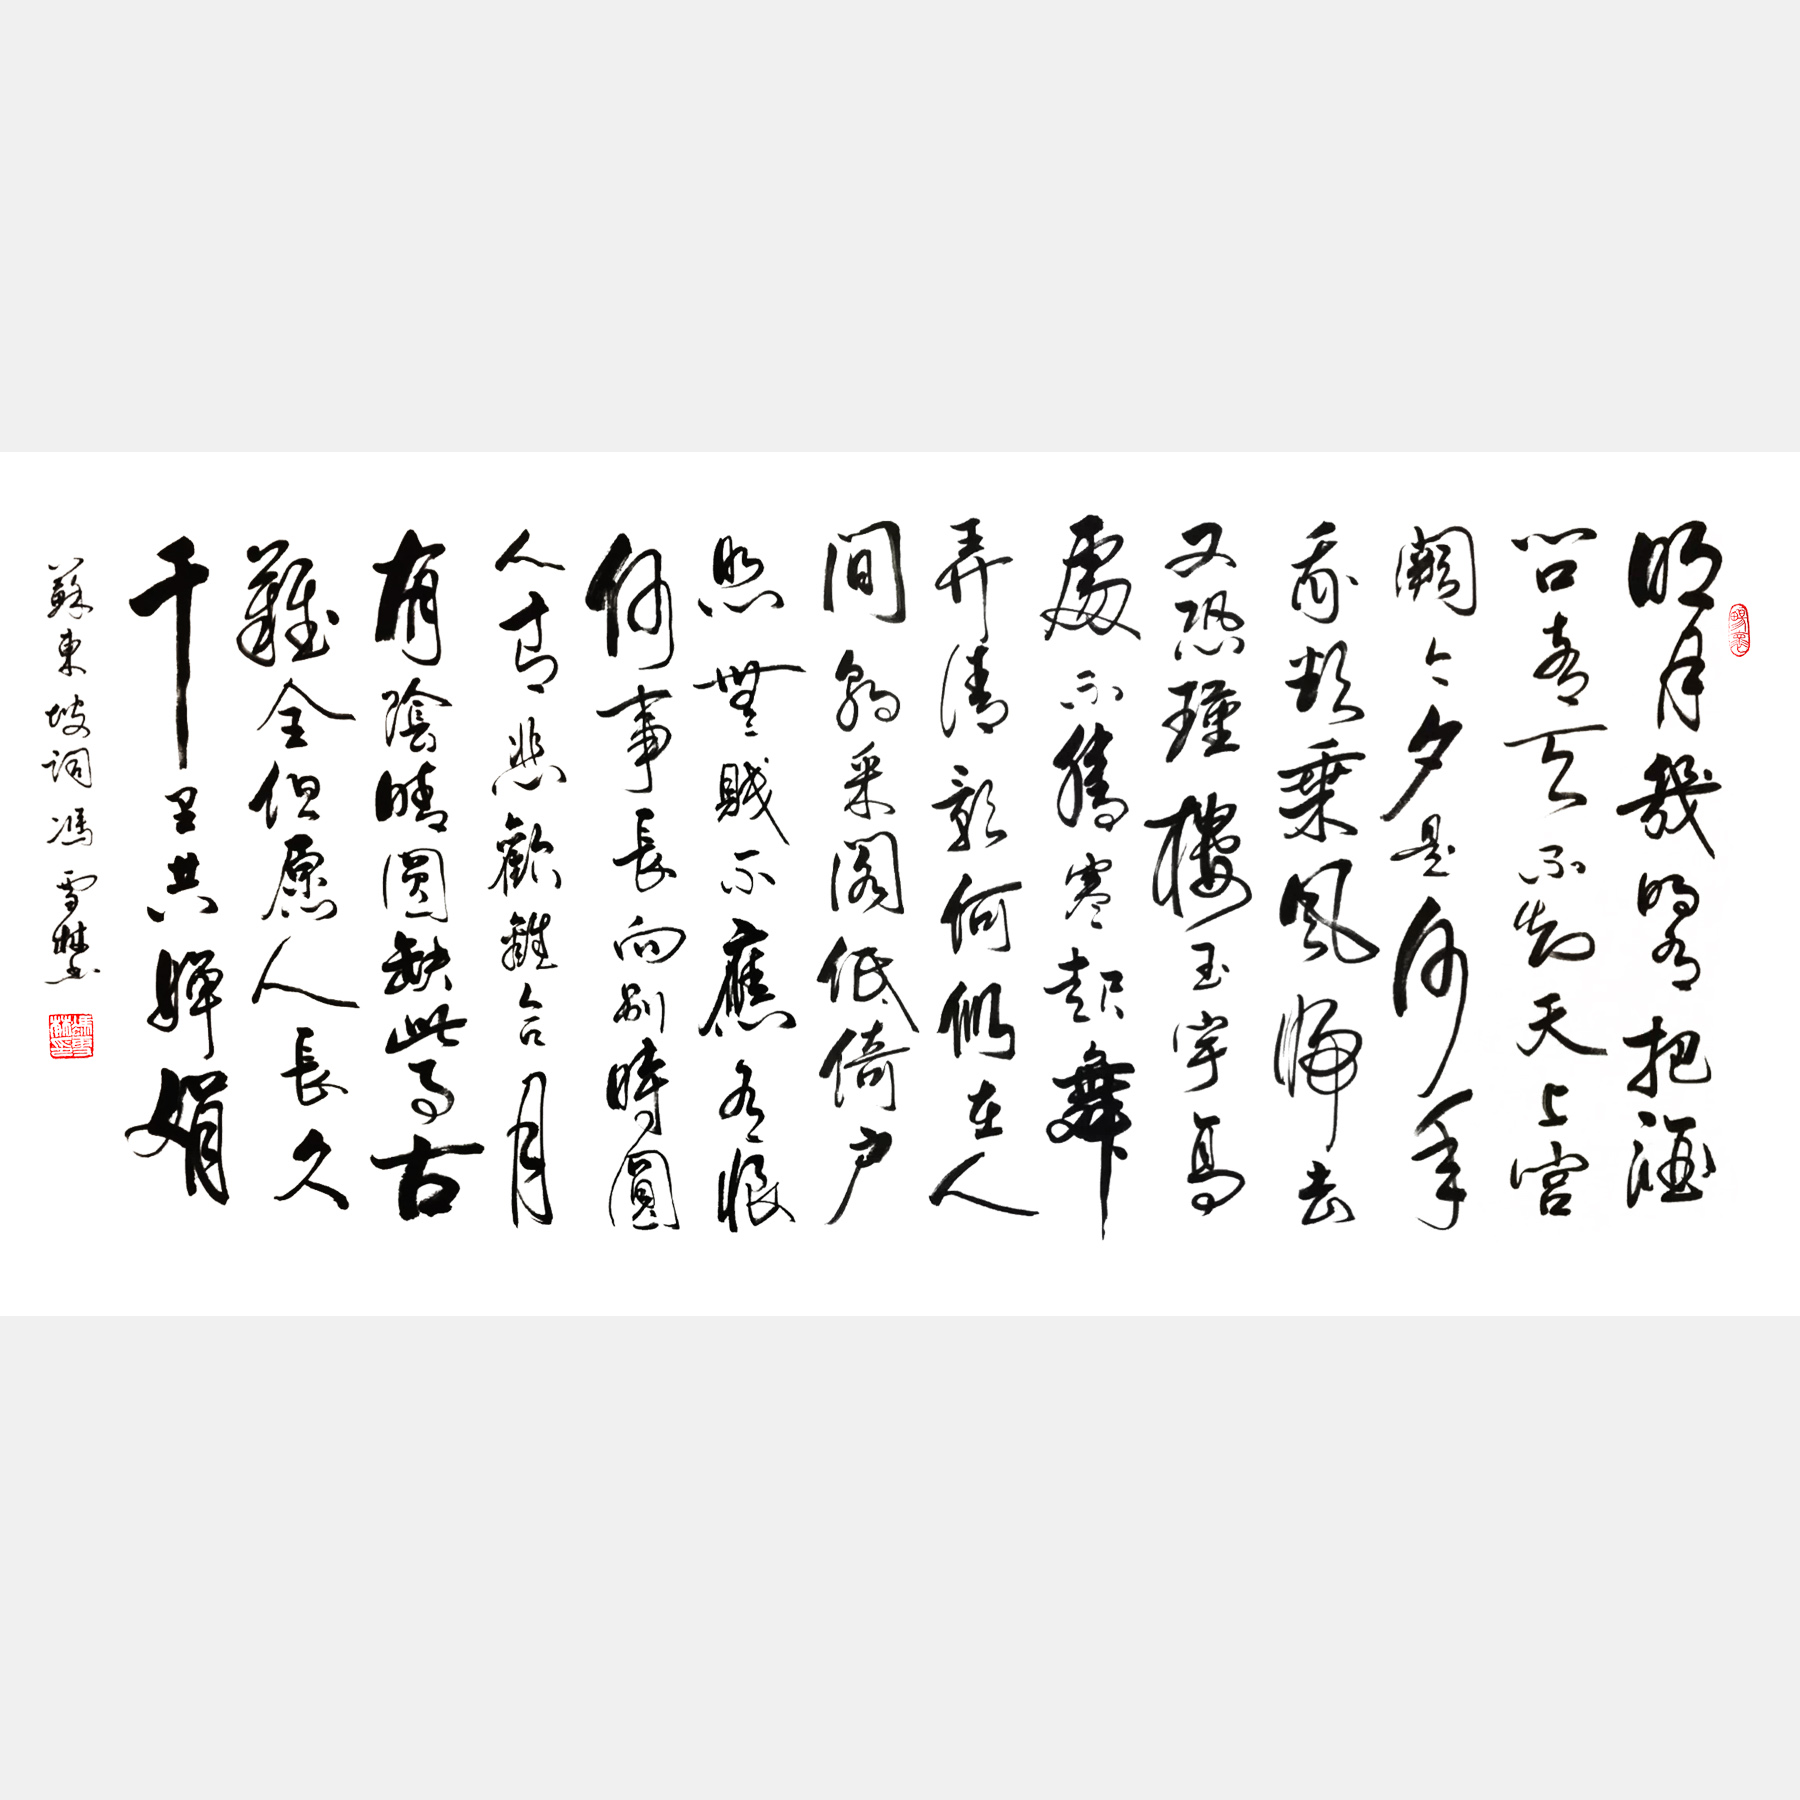 明月幾時有把酒
問青天不知天上宮
闕今夕是何年
我欲乘風歸去
又恐瓊樓玉宇高
處不勝寒起舞
弄清影何似在人
間轉朱閣低倚户
照無眠不應有恨
何事長向別時圓
人有悲歡離合月
有陰晴圓缺此事古
難全但愿人長久
千里共嬋娟
蘇東坡詞馮雪林書